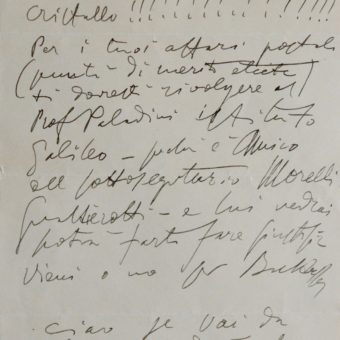 cristallo !!!!!!!!!!!
Per i tuoi affari postali
(punti di merito etc etc)
ti dovresti rivolgere al
Prof Paladini istituto
Galileo – perché è Amico
del sottosegretario Morelli
Gualtierotti – e lui vedrai
potrà farti fare giustizia
Vieni o no per
ciao se vai da